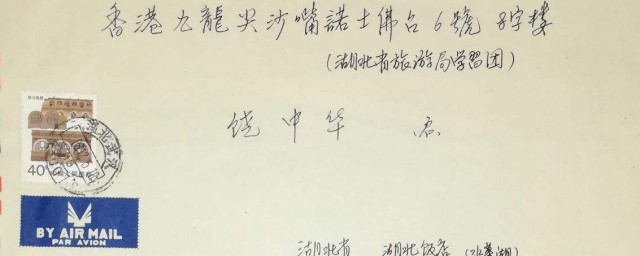 香港九龍尖沙嘴諾士佛台6號8字楼
(湖北省旅游局学習团)
饶中华
40
BY AIR MAIL
PAR AVION
湖北省 湖北饭店